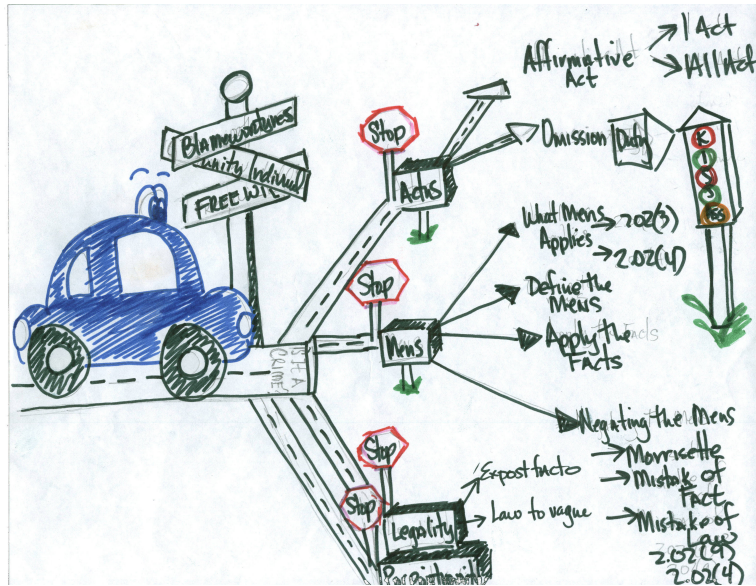 Blameworthyness
unity Individual
FREE WILL
IS IT A
CRIME?
Stop
Actus
Affirmative
Act
1 Act
All Act
Omission
Duty
K
Stop
Mens
What Mens
Applies
2.02(3)
2.02(4)
Define the
MENS
Apply the
Facts
Negating the Mens
Morrisette
Mistake of
Fact
Mistake of
Law
2.02(9)
2.04
Stop
Stop
Legality
Expostfacto
Law to vague